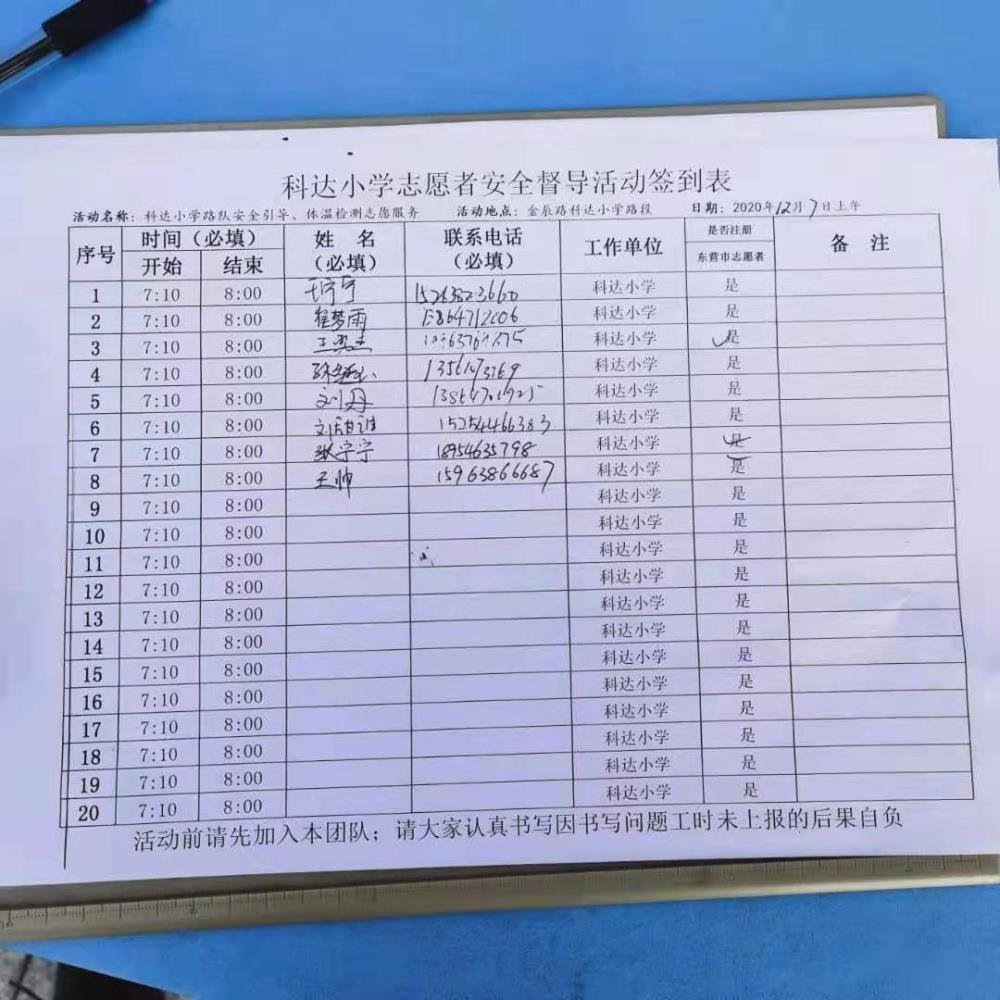 科达小学志愿者安全督导活动签到表
活动名称：科达小学路队安全引导、体温检测志愿服务 活动地点：金辰路科达小学路段 日期：2020年12月7日上午
序号 时间（必填） 姓 名 联系电话 工作单位 是否注册 备 注
开始 结束 （必填） （必填） 东营市志愿者
1 7:10 8:00 15263823660 科达小学 是
2 7:10 8:00 崔梦雨 科达小学 是
3 7:10 8:00 科达小学 是
4 7:10 8:00 科达小学 是
5 7:10 8:00 刘丹 科达小学 是
6 7:10 8:00 15254466383 科达小学 是
7 7:10 8:00 张宁宁 18954635798 科达小学 是
8 7:10 8:00 王帅 15963866687 科达小学 是
9 7:10 8:00 科达小学 是
10 7:10 8:00 科达小学 是
11 7:10 8:00 科达小学 是
12 7:10 8:00 科达小学 是
13 7:10 8:00 科达小学 是
14 7:10 8:00 科达小学 是
15 7:10 8:00 科达小学 是
16 7:10 8:00 科达小学 是
17 7:10 8:00 科达小学 是
18 7:10 8:00 科达小学 是
19 7:10 8:00 科达小学 是
20 7:10 8:00 科达小学 是
活动前请先加入本团队；请大家认真书写因书写问题工时未上报的后果自负